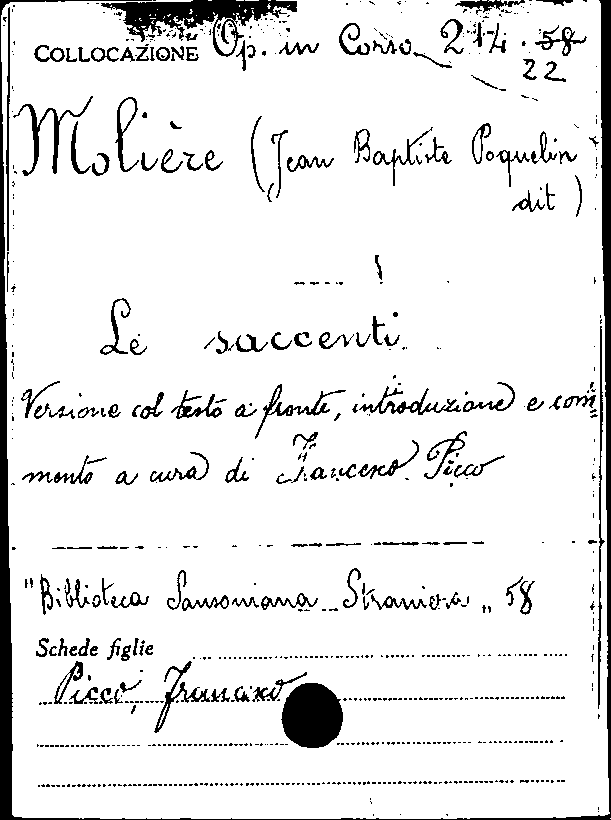 COLLOCAZIONE Op. in Corso 214. 58
22
Molière (Jean Baptiste Poquelin
dit)
Le saccenti
Versione col testo a fronte, introduzione e com=
mento a cura di Francesco Picco
"Biblioteca Sansoniana Straniera" 58
Schede figlie
Picco, Francesco